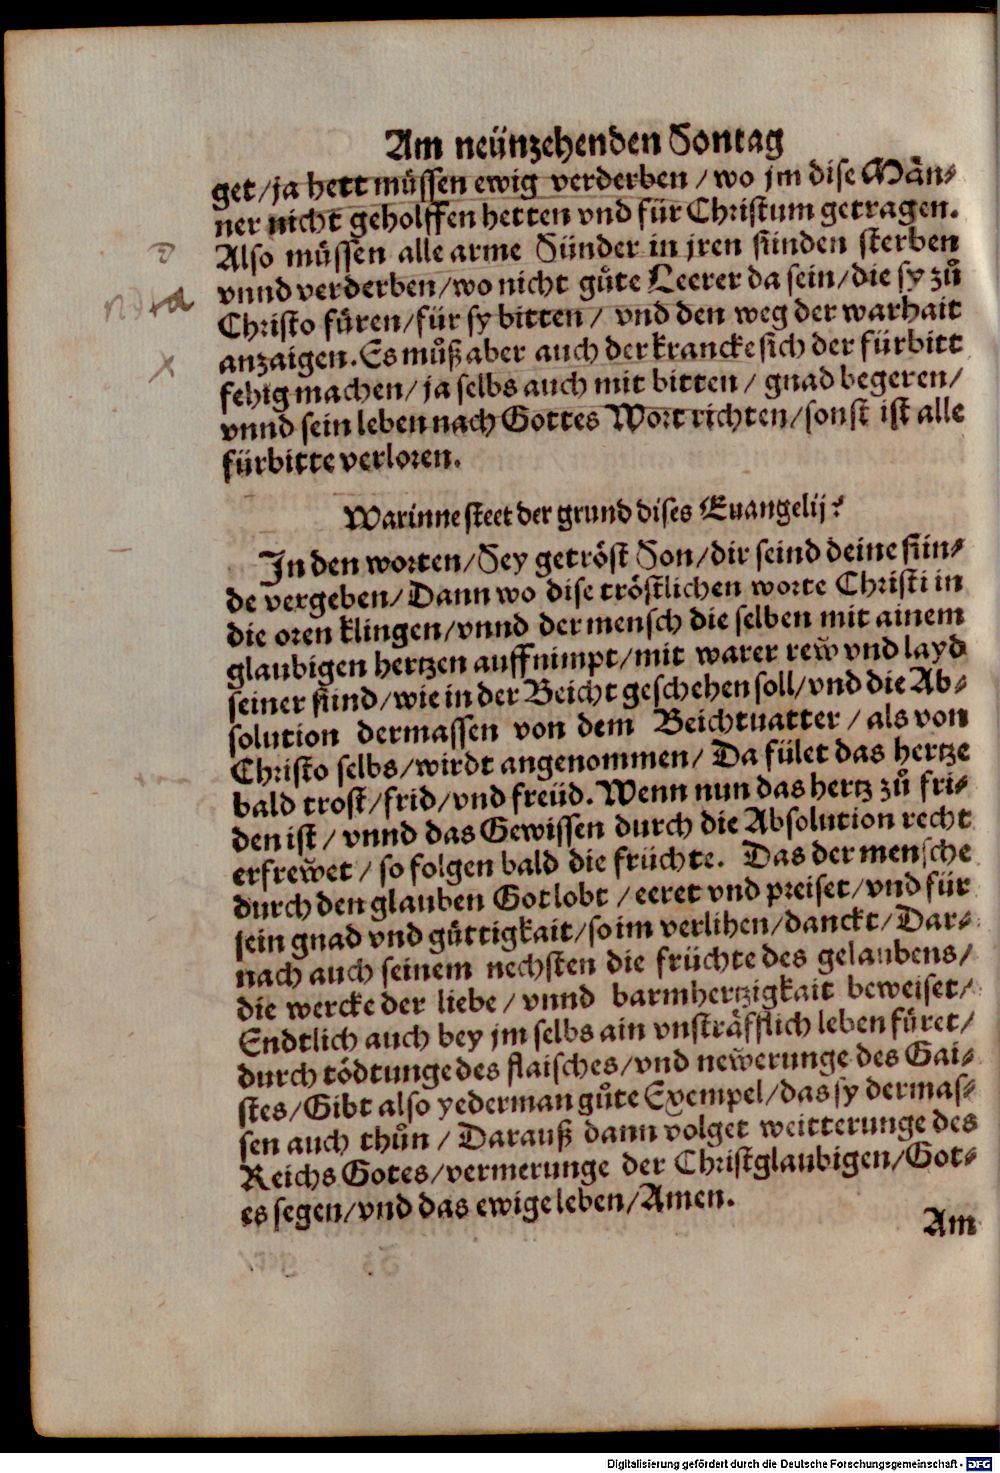 Am neünzehenden Sontag
get/ja hett müssen ewig verderben/wo jm dise Män-
ner nicht geholffen hetten vnd für Christum getragen.
Also müssen alle arme Sünder in jren sünden sterben
vnnd verderben/wo nicht gůte Leerer da sein/die sy zů
Christo füren/für sy bitten/ vnd den weg der warhait
anzaigen. Es můß aber auch der krancke sich der fürbitt
fehig machen/ja selbs auch mit bitten/ gnad begeren/
vnnd sein leben nach Gottes Wort richten/sonst ist alle
fürbitte verloren.
Warinne steet der grund dises Euangelij?
In den worten/Sey getröst Son/dir seind deine sün-
de vergeben/Dann wo dise tröstlichen worte Christi in
die oren klingen/vnnd der mensch die selben mit ainem
glaubigen hertzen auffnimpt/mit warer rew̆ vnd layd
seiner sünd/wie in der Beicht geschehen soll/vnd die Ab-
solution dermassen von dem Beichtuatter/als von
Christo selbs/wirdt angenommen/ Da fület das hertze
bald trost/frid/vnd freüd. Wenn nun das hertz zů fri-
den ist/ vnnd das Gewissen durch die Absolution recht
erfrew̆et/ so folgen bald die früchte. Das der mensche
durch den glauben Got lobt/eeret vnd preiset/vnd für
sein gnad vnd güttigkait/so im verlihen/danckt/Dar-
nach auch seinem nechsten die früchte des gelaubens/
die wercke der liebe/ vnnd barmhertzigkait beweiset/
Endtlich auch bey jm selbs ain vnsträfflich leben füret/
durch tödtunge des flaisches/vnd new̆erunge des Gai-
stes/Gibt also yederman gůte Exempel/das sy dermas-
sen auch thůn/ Darauß dann volget weitterunge des
Reichs Gotes/vermerunge der Christglaubigen/Got-
es segen/vnd das ewige leben/Amen.
Am
Digitalisierung gefördert durch die Deutsche Forschungsgemeinschaft - DFG